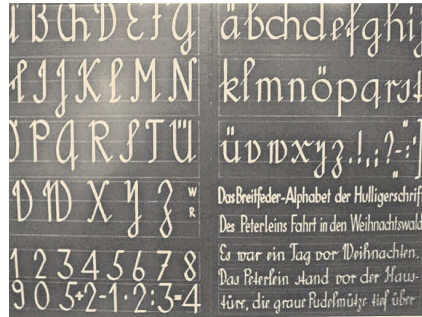 A B Ch D E F G
H I J K L M N
Ö P Q R S T Ü
V W X Y Z W R
1 2 3 4 5 6 7 8
9 0 5+2-1·2:3=4
äbchdefghij
klmnöpqrst
üvwxyz.!,;?-:"
Das Breitfeder-Alphabet der Hulligerschrift
Des Peterleins Fahrt in den Weihnachtswald
Es war ein Tag vor Weihnachten.
Das Peterlein stand vor der Haus-
türe, die graue Pudelmütze tief über